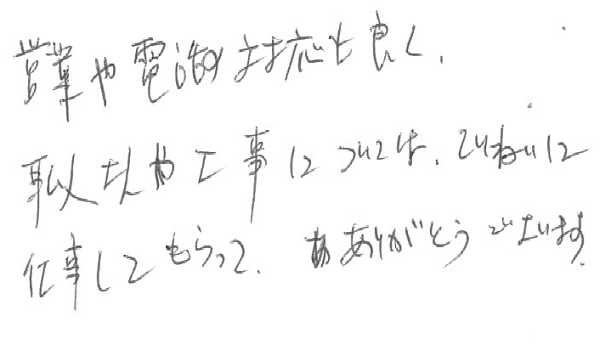 営業や電話対応も良く、
取付や工事については、ていねいに
仕事してもらって、ありがとうございます。